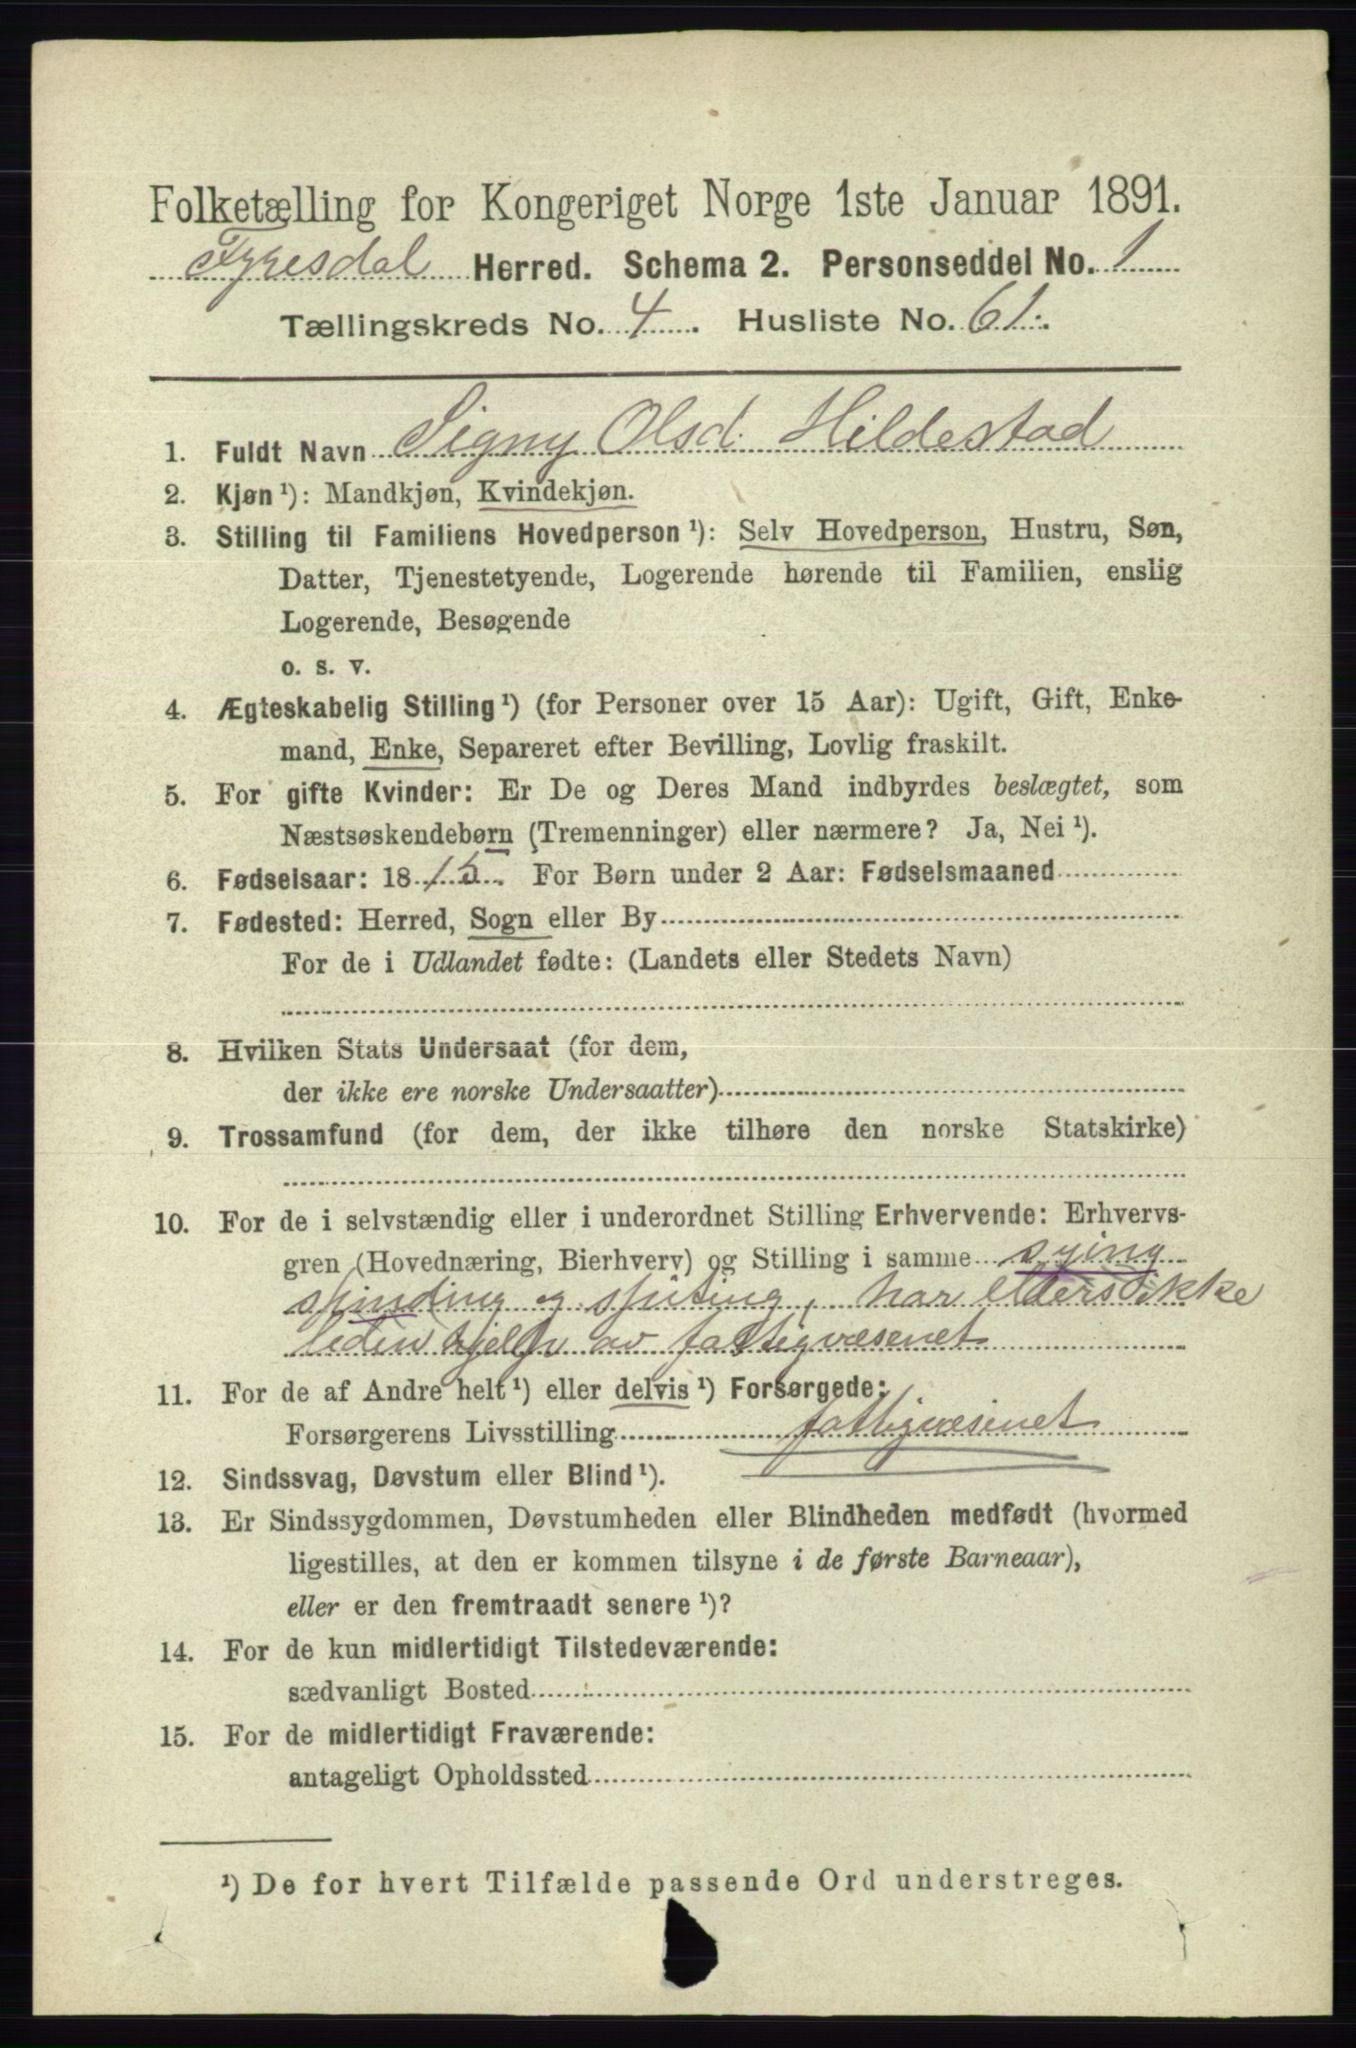 Folketælling for Kongeriget Norge 1ste Januar 1891.
Fyresdal Herred. Schema 2. Personseddel No. 1
Tællingskreds No. 4. Husliste No. 61.
1. Fuldt Navn Signy Olsd. Hildestad
2. Kjøn ¹): Mandkjøn, Kvindekjøn.
3. Stilling til Familiens Hovedperson ¹): Selv Hovedperson, Hustru, Søn,
Datter, Tjenestetyende, Logerende hørende til Familien, enslig
Logerende, Besøgende
o. s. v.
4. Ægteskabelig Stilling ¹) (for Personer over 15 Aar): Ugift, Gift, Enke-
mand, Enke, Separeret efter Bevilling, Lovlig fraskilt.
5. For gifte Kvinder: Er De og Deres Mand indbyrdes beslægtet, som
Næstsøskendebørn (Tremenninger) eller nærmere? Ja, Nei ¹).
6. Fødselsaar: 1815. For Børn under 2 Aar: Fødselsmaaned
7. Fødested: Herred, Sogn eller By
For de i Udlandet fødte: (Landets eller Stedets Navn)
8. Hvilken Stats Undersaat (for dem,
der ikke ere norske Undersaatter)
9. Trossamfund (for dem, der ikke tilhøre den norske Statskirke)
10. For de i selvstændig eller i underordnet Stilling Erhvervende: Erhvervs-
gren (Hovednæring, Bierhverv) og Stilling i samme sying
spinding og spiting, har elders ikke
liden hjelp av fattigvæsenet
11. For de af Andre helt ¹) eller delvis ¹) Forsørgede:
Forsørgerens Livsstilling fattigvæsenet
12. Sindssvag, Døvstum eller Blind ¹).
13. Er Sindssygdommen, Døvstumheden eller Blindheden medfødt (hvormed
ligestilles, at den er kommen tilsyne i de første Barneaar),
eller er den fremtraadt senere ¹)?
14. For de kun midlertidigt Tilstedeværende:
sædvanligt Bosted
15. For de midlertidigt Fraværende:
antageligt Opholdssted
¹) De for hvert Tilfælde passende Ord understreges.